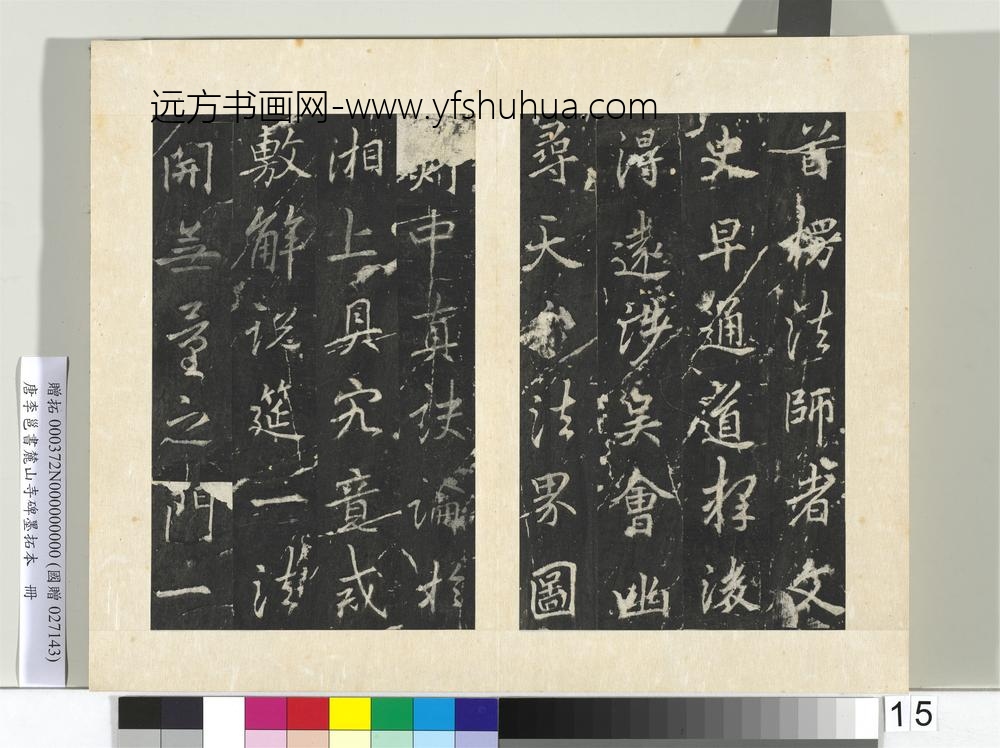 远方书画网-www.yfshuhua.com
首楞法師者文
史早通道釋後
得遠涉吳會幽
尋天台法界圖
中真訣論於
湘上具究竟戒
敷解說筵一法
開無量之門一
贈拓 000372N000000000 (國贈 027143)
唐李邕書麓山寺碑墨拓本 冊
15